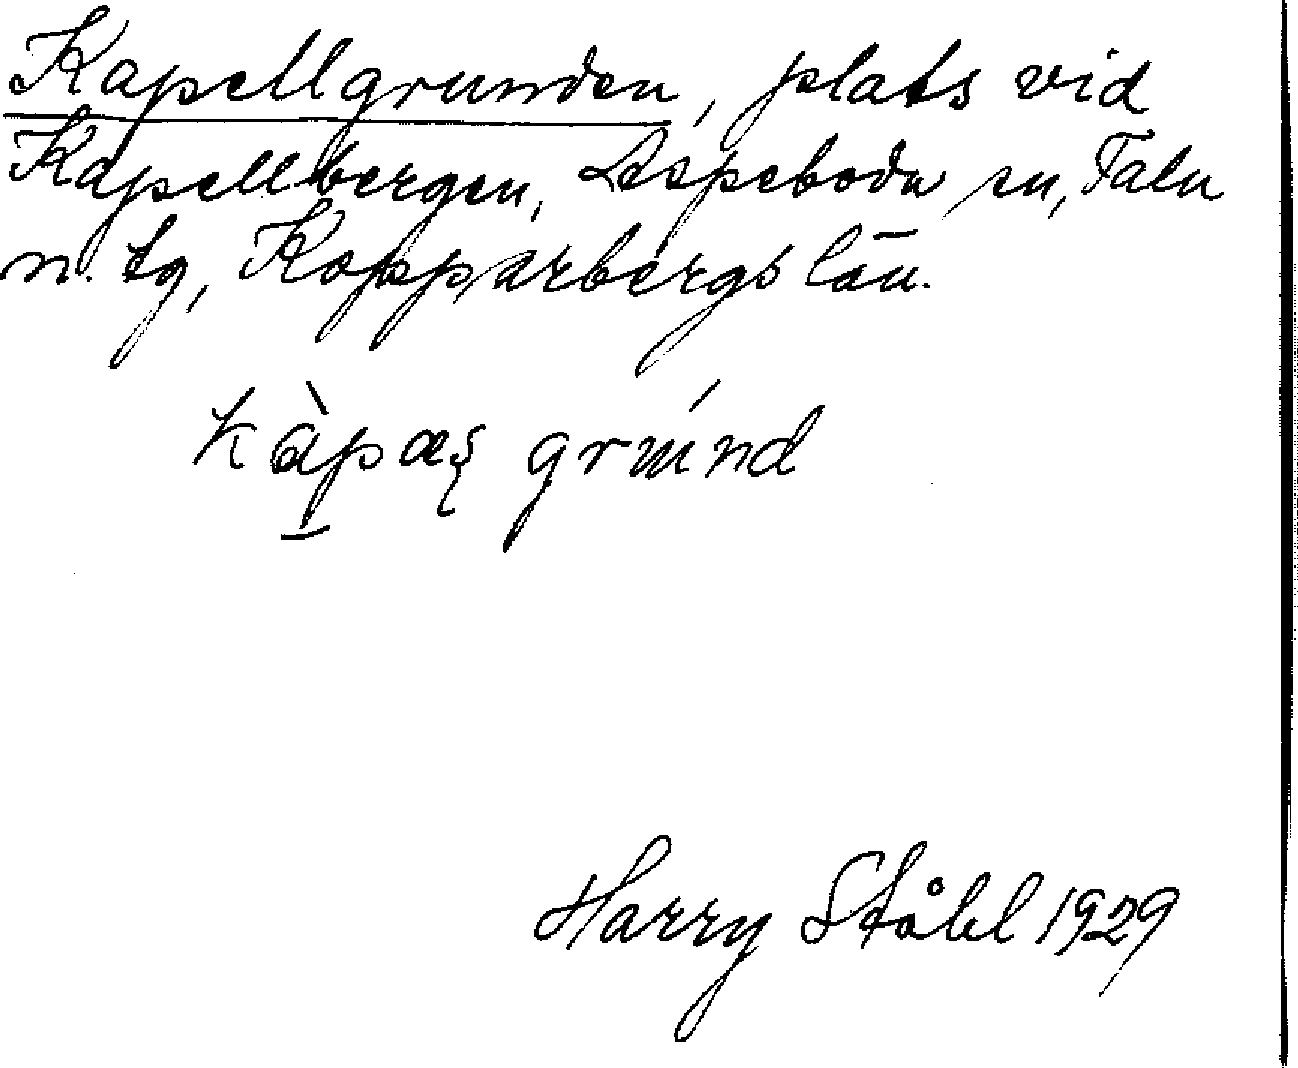 Kapellgrunden, plats vid
Kapellbergen, Aspeboda sn, Falu
n. tg, Kopparbergs län.
grùnd
Harry Ståhl 1929